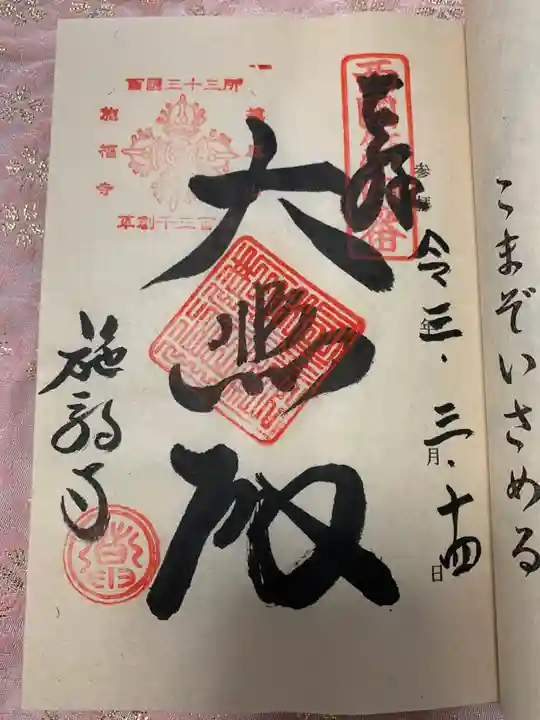 こまぞいさめる
奉拝
西国第四番
令三年.三月.十四日
大悲殿
西國三十三所
草創千三百
施福寺
施福寺